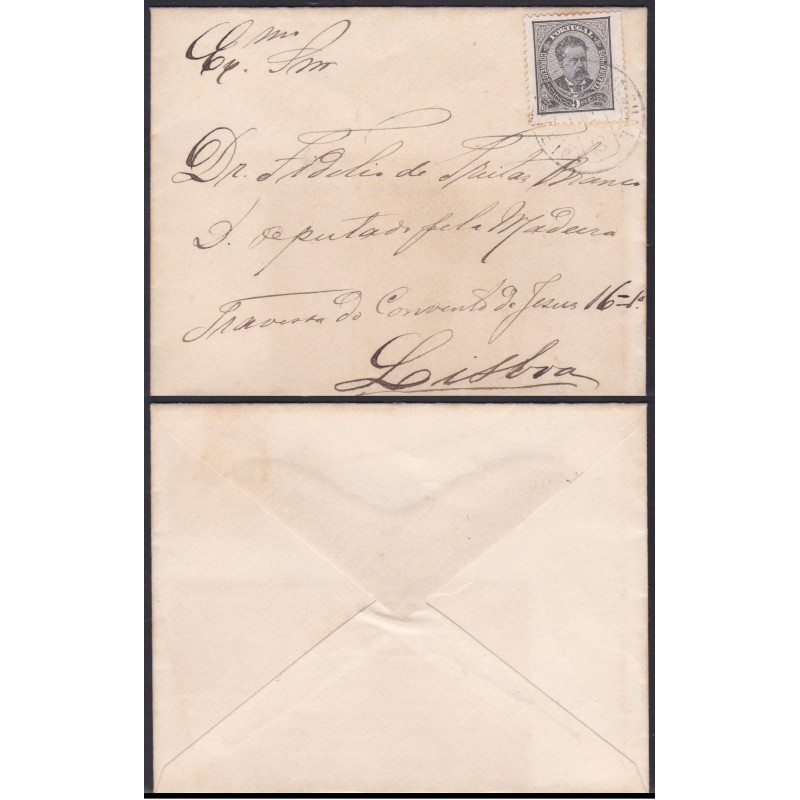 PORTUGAL
5
Ex.mo Snr
Dr. Fidelio de Freitas Branco
D. deputado pela Madeira
Travessa do Convento de Jesus 16-1º
Lisboa